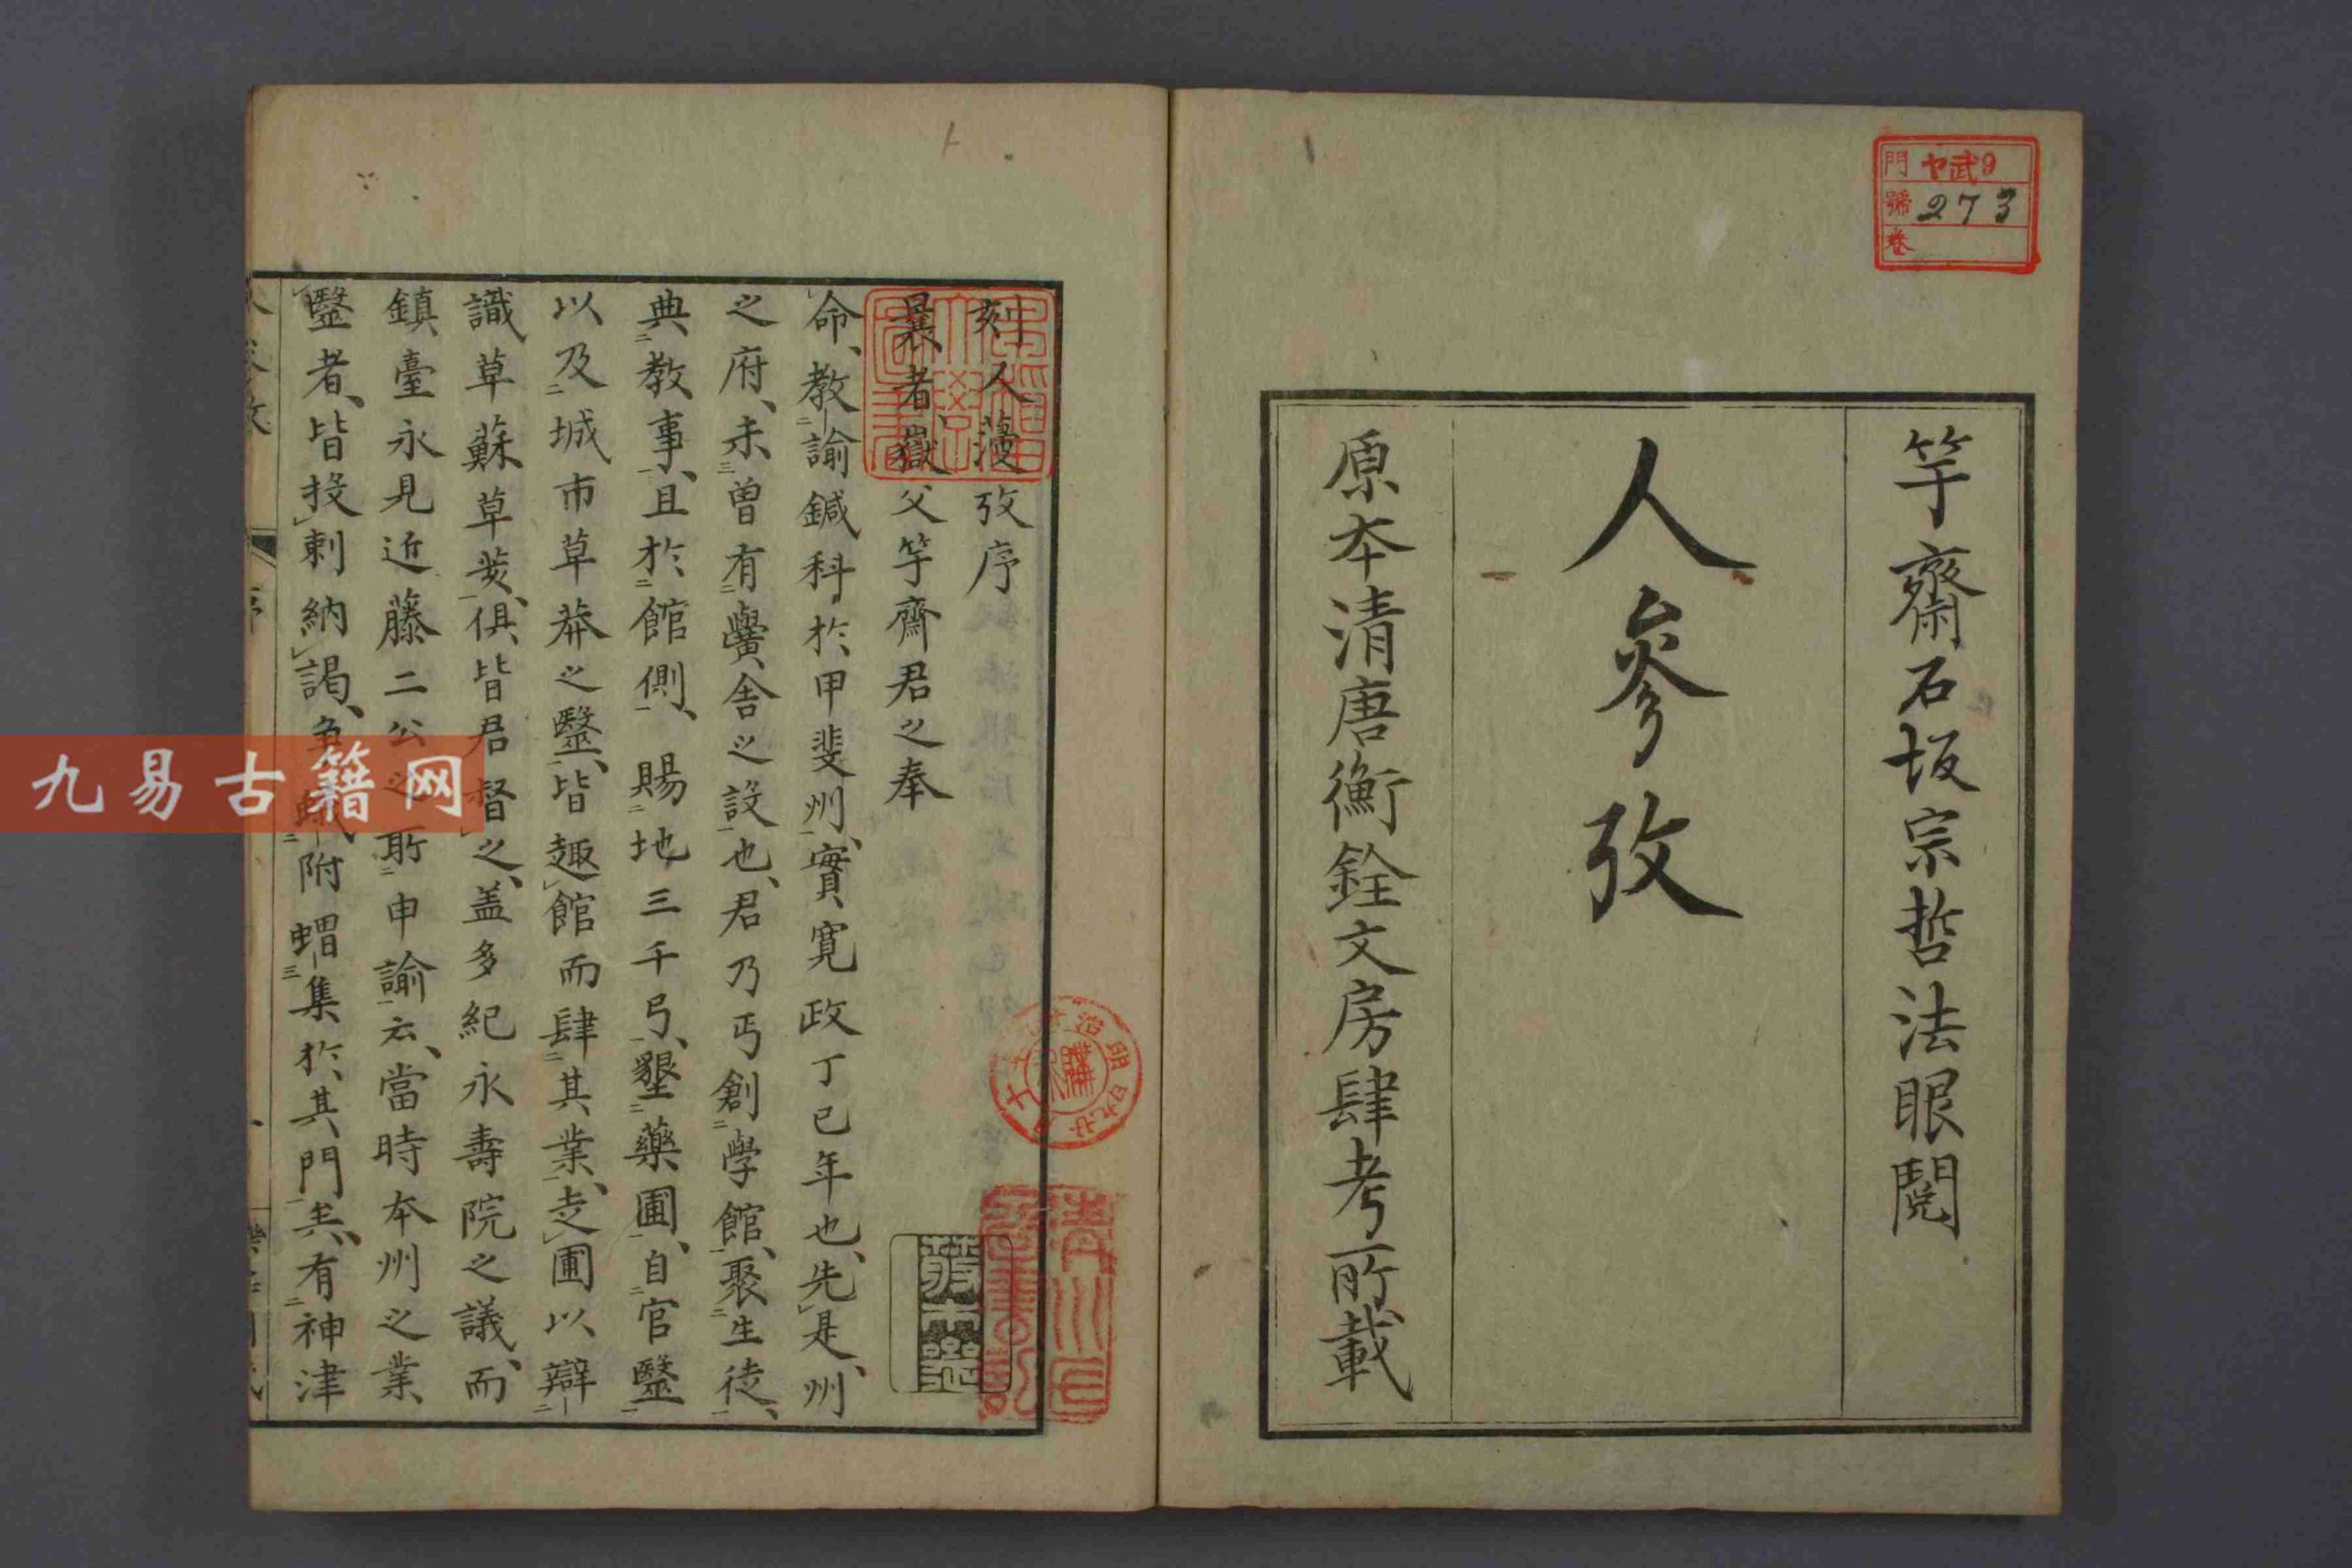 竽齋石坂宗哲法眼閱
人參攷
原本清唐衡銓文房肆考所載
門 ヤ武9
號 273
卷
刻人薓攷序
曩者、嶽父竽齋君之奉
命、教諭鍼科於甲斐州、實寬政丁巳年也、先是、州
之府、未曾有黌舍之設也、君乃丐創學館、聚生徒、
典教事、且於館側、賜地三千弓、墾藥圃、自官醫
以及城市草莽之醫、皆趣館而肆其業、走圃以辯
識草蘇草荄、俱皆君督之、盖多紀永壽院之議、而
鎮臺永見近藤二公之所申諭云、當時本州之業
醫者、皆投刺納謁、蟻附蝟集於其門矣、有神津
序
九易古籍网